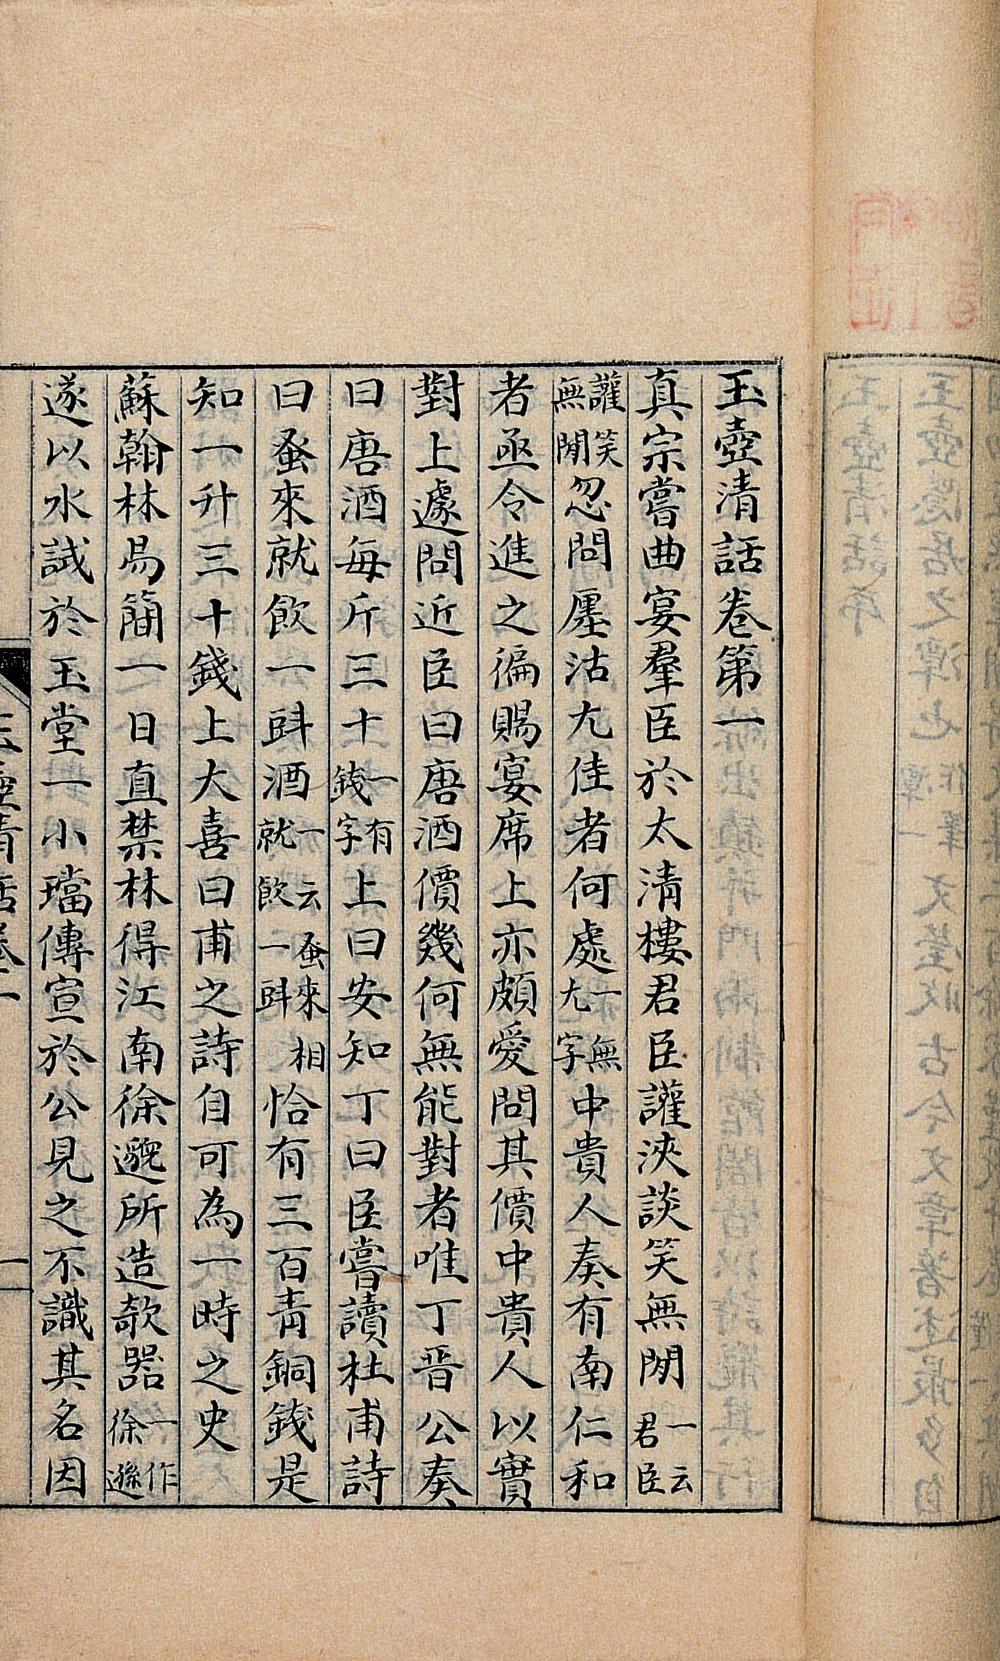 玉壺清話卷第一
真宗嘗曲宴羣臣於太清樓君臣讙浹談笑無閒一云君臣
讙笑無閒忽問廛沽尢佳者何處一無尢字中貴人奏有南仁和
者亟令進之徧賜宴席上亦頗愛問其價中貴人以實
對上遽問近臣曰唐酒價幾何無能對者唯丁晋公奏
曰唐酒每斤三十一有錢字上曰安知丁曰臣嘗讀杜甫詩
曰蚤來就飲一㪷酒一云蚤來相就飲一㪷恰有三百青銅錢是
知一升三十錢上大喜曰甫之詩自可為一時之史
蘇翰林易簡一日直禁林得江南徐邈所造欹器一作徐遜
遂以水試於玉堂一小璫傳宣於公見之不識其名因
玉壺清話卷一
一